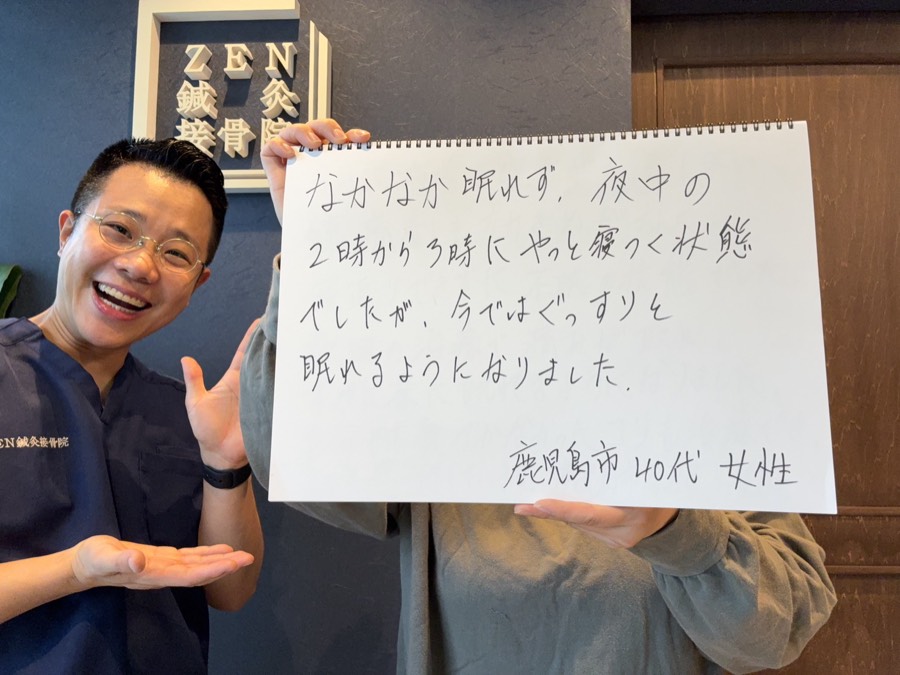 ZEN
鍼灸
接骨院
なかなか眠れず、夜中の
2時から3時にやっと寝つく状態
でしたが、今ではぐっすりと
眠れるようになりました。
鹿児島市 40代 女性
ZEN鍼灸接骨院